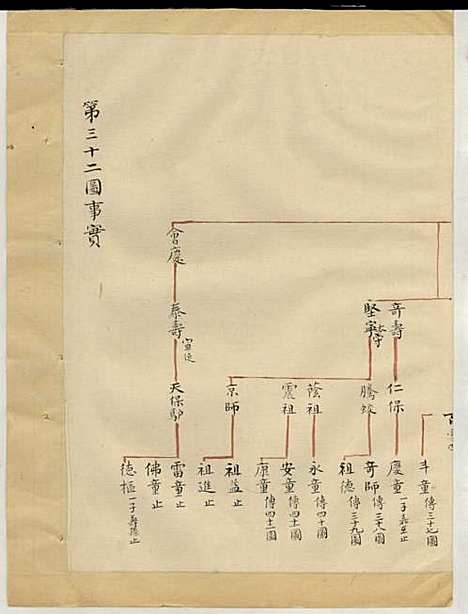 斗童傳三十七圖
奇壽
仁保
慶童
堅寧
騰蛟
奇師傳三十八圖
祖德傳三十九圖
蔭祖
永童傳四十圖
震祖
安童傳四十一圖
康童傳四十二圖
京師
祖盛止
祖進止
會慶
泰壽
天保馿
雷童止
佛童止
德樞一子壽孫止
第三十二圖事實